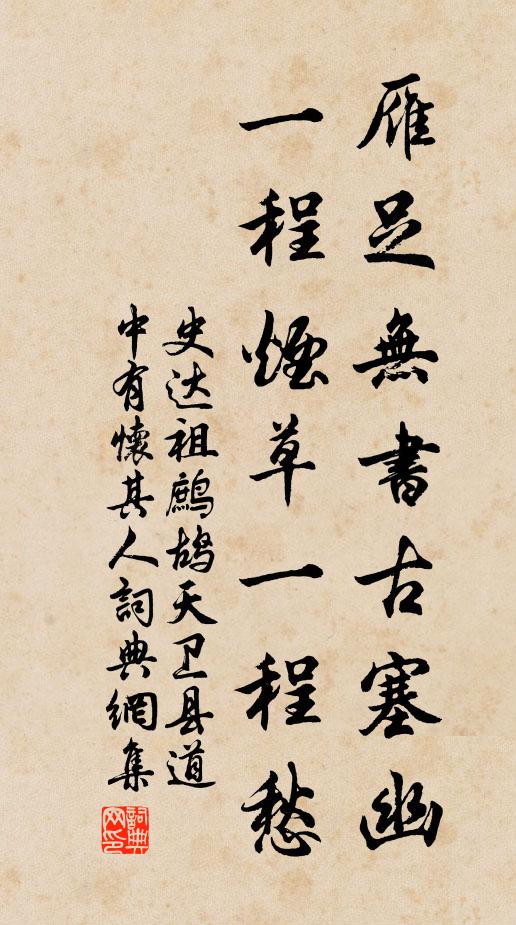 雁足無書古塞幽
一程煙草一程愁
史达祖鹧鸪天卫县道
中有懷其人詞典網集
詞典网印